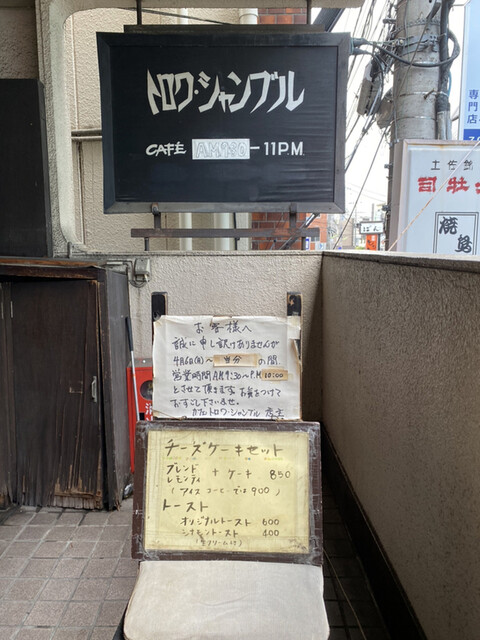 トロワ・シャンブル
CAFÉ AM9:30-11P.M.
専門店
土佐鶴
司牡
焼鳥
ぱん
お客様へ
誠に申し訳けありませんが
4月6日(月)〜当分の間
営業時間AM9:30〜P.M10:00
とさせて頂きます お気をつけて
おすごし下さいませ。
カフェトロワ・シャンブル 店主
チーズケーキセット
ブレンド
レモンティ + ケーキ 850
(アイスコーヒーでは900)
トースト
オリジナルトースト 600
シナモントースト 400